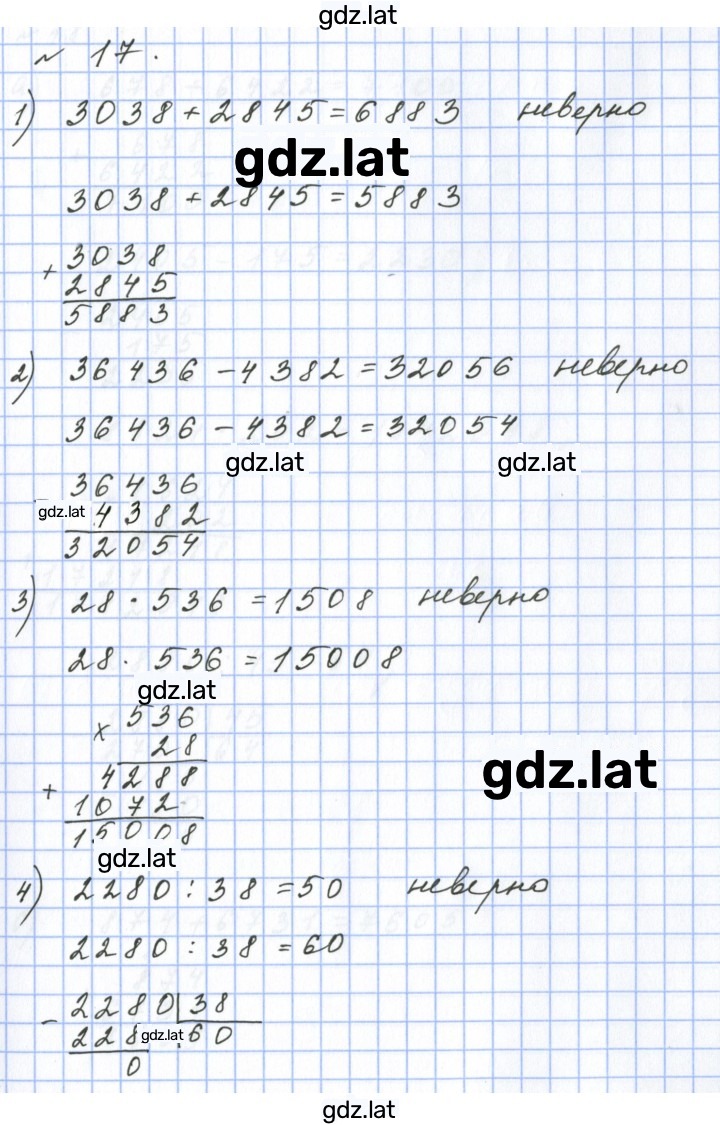 gdz.lat
№ 17.
1) 3038 + 2845 = 6883 неверно
gdz.lat
3038 + 2845 = 5883
+ 3038
2845
5883
2) 36436 - 4382 = 32056 неверно
36436 - 4382 = 32054
gdz.lat gdz.lat
36436
gdz.lat 4382
32054
3) 28 · 536 = 1508 неверно
28 · 536 = 15008
gdz.lat
× 536
28
gdz.lat
+ 4288
1072
15008
gdz.lat
4) 2280 : 38 = 50 неверно
2280 : 38 = 60
- 2280 | 38
228 gdz.lat 60
0
gdz.lat